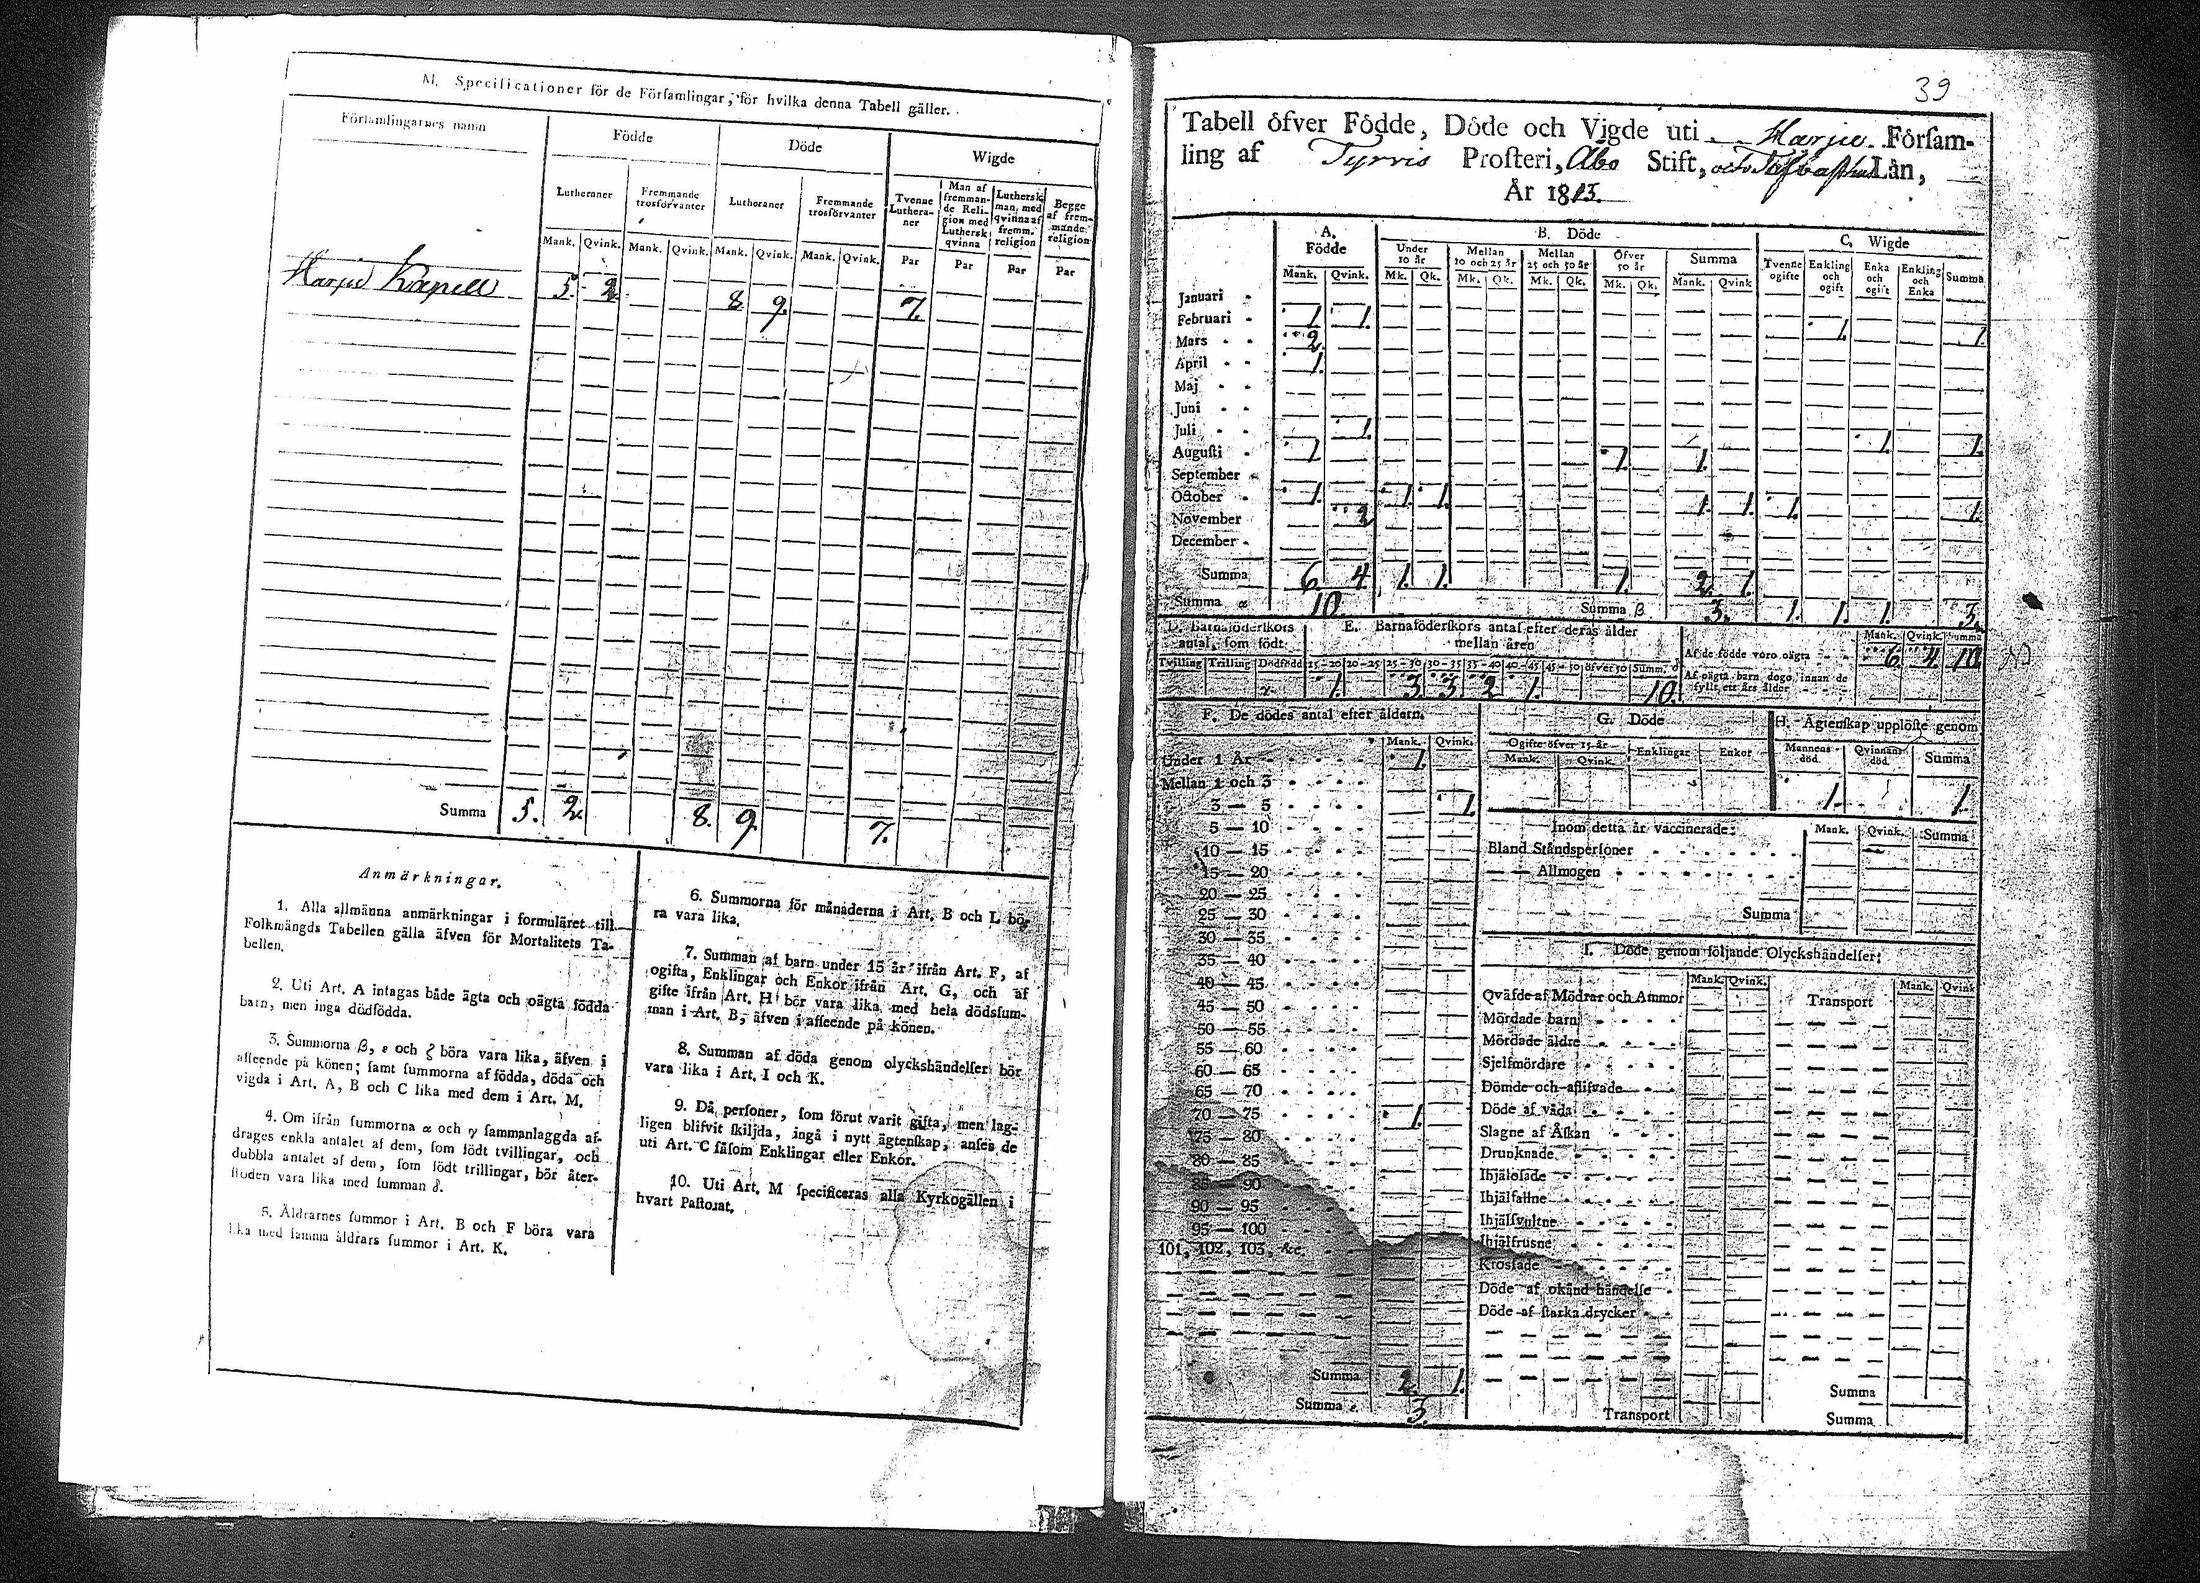 M. Specificationer för de Församlingar, för hvilka denna Tabell gäller.
Församlingarnes namn
Födde
Döde
Wigde
Lutheraner
Fremmande trosförvanter
Lutheraner
Fremmande trosförvanter
Tvenne Lutheraner
Man af fremmande Religion med Luthersk qvinna
Luthersk man med qvinna af fremm. religion
Begge af fremmande religion
Mank. Qvink. Mank. Qvink. Mank. Qvink. Mank. Qvink. Par Par Par Par
Harju Kapell 5. 2. 8. 9. 7.
Summa 5. 2. 8. 9. 7.
Anmärkningar.
1. Alla allmänna anmärkningar i formuläret till
Folkmängds Tabellen gälla äfven för Mortalitets Ta-
bellen.
2. Uti Art. A intagas både ägta och oägta födda
barn, men inga dödfödda.
3. Summorna β, ε och ζ böra vara lika, äfven i
afseende på könen; samt summorna af födda, döda och
vigda i Art. A, B och C lika med dem i Art. M.
4. Om ifrån summorna α och γ sammanlaggda af-
drages enkla antalet af dem, som födt tvillingar, och
dubbla antalet af dem, som födt trillingar, bör åter-
stoden vara lika med summan δ.
5. Åldrarnes summor i Art. B och F böra vara
lika med samma åldrars summor i Art. K.
6. Summorna för månaderna i Art. B och L bö-
ra vara lika.
7. Summan af barn under 15 år ifrån Art. F, af
ogifta, Enklingar och Enkor ifrån Art. G, och af
gifte ifrån Art. H bör vara lika med hela dödssum-
man i Art. B, äfven i afseende på könen.
8. Summan af döda genom olyckshändelser bör
vara lika i Art. I och K.
9. Då personer, som förut varit gifta, men lag-
ligen blifvit skiljda, ingå i nytt ägtenskap, anses de
uti Art. C såsom Enklingar eller Enkor.
10. Uti Art. M specificeras alla Kyrkogällen i
hvart Pastorat.
39
Tabell öfver Födde, Döde och Vigde uti Harju Försam-
ling af Tyrvis Prosteri, Åbo Stift, och Tafvasthus Län,
År 1813.
A. Födde
B. Döde
C. Wigde
Under 10 år
Mellan 10 och 25 år
Mellan 25 och 50 år
Öfver 50 år
Summa
Tvenne ogifte
Enkling och ogift
Enka och ogift
Enkling och Enka
Summa
Mank. Qvink. Mk. Qk. Mk. Qk. Mk. Qk. Mk. Qk. Mank. Qvink
Januari
Februari 1. 1. 1. 1.
Mars 2.
April 1.
Maj
Juni
Juli 1. 1. 1.
Augusti 1. 1. 1.
September
October 1. 1. 1. 1. 1. 1. 1.
November 2
December
Summa 6. 4 1. 1. 1. 2. 1.
Summa α 10. Summa β 3. 1. 1. 1. 3.
D. Barnaföderskors antal, som födt
E. Barnaföderskors antal efter deras ålder mellan åren
Tvilling Trilling Dödfödd 15-20 20-25 25-30 30-35 35-40 40-45 45-50 öfver 50 Summ. δ
γ. 1. 3. 3. 2. 1. 10.
Mank. Qvink. Summa
Af de födde voro oägta 6. 4. 10.
Af oägta barn dogo innan de
fyllt ett års ålder
F. De dödes antal efter åldern.
Mank. Qvink.
Under 1 År 1.
Mellan 1 och 3
3 — 5 1.
5 — 10
10 — 15
15 — 20
20 — 25
25 — 30
30 — 35
35 — 40
40 — 45
45 — 50
50 — 55
55 — 60
60 — 65
65 — 70
70 — 75 1.
75 — 80
80 — 85
85 — 90
90 — 95
95 — 100
101, 102, 103, &c.
Summa 2. 1.
Summa ε 3.
G. Döde
Ogifte öfver 15 år
Enklingar
Enkor
Mank. Qvink.
H. Ägtenskap upplöste genom
Mannens död.
Qvinnans död.
Summa
1. 1.
Inom detta år vaccinerade:
Mank. Qvink. Summa
Bland Ståndspersoner
Allmogen
Summa
I. Döde genom följande Olyckshändelser:
Mank. Qvink. Mank. Qvink
Qväfde af Mödrar och Ammor
Transport
Mördade barn
Mördade äldre
Sjelfmördare
Dömde och aflifvade
Döde af våda
Slagne af Åskan
Drunknade
Ihjälosade
Ihjälfallne
Ihjälsvultne
Ihjälfrusne
Krossade
Döde af okänd händelse
Döde af starka drycker
Transport
Summa
Summa